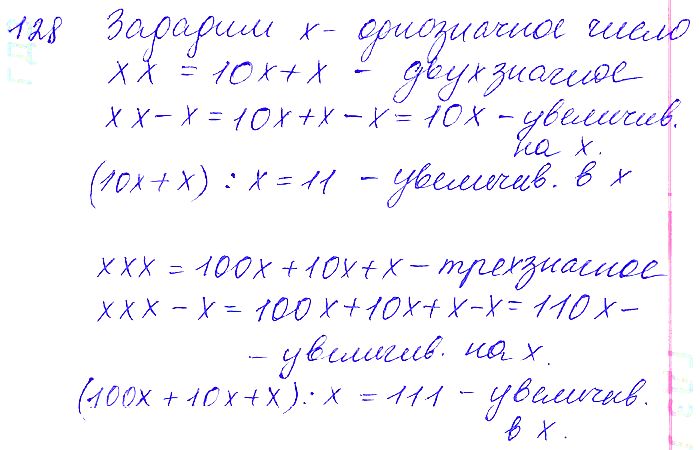 128 Зададим x - однозначное число
xx = 10x+x - двухзначное
xx-x = 10x+x-x = 10x - увеличив.
на x.
(10x+x) : x = 11 - увеличив. в x
xxx = 100x+10x+x - трехзначное
xxx - x = 100x+10x+x-x = 110x -
- увеличив. на x.
(100x+10x+x) : x = 111 - увеличив.
в x.